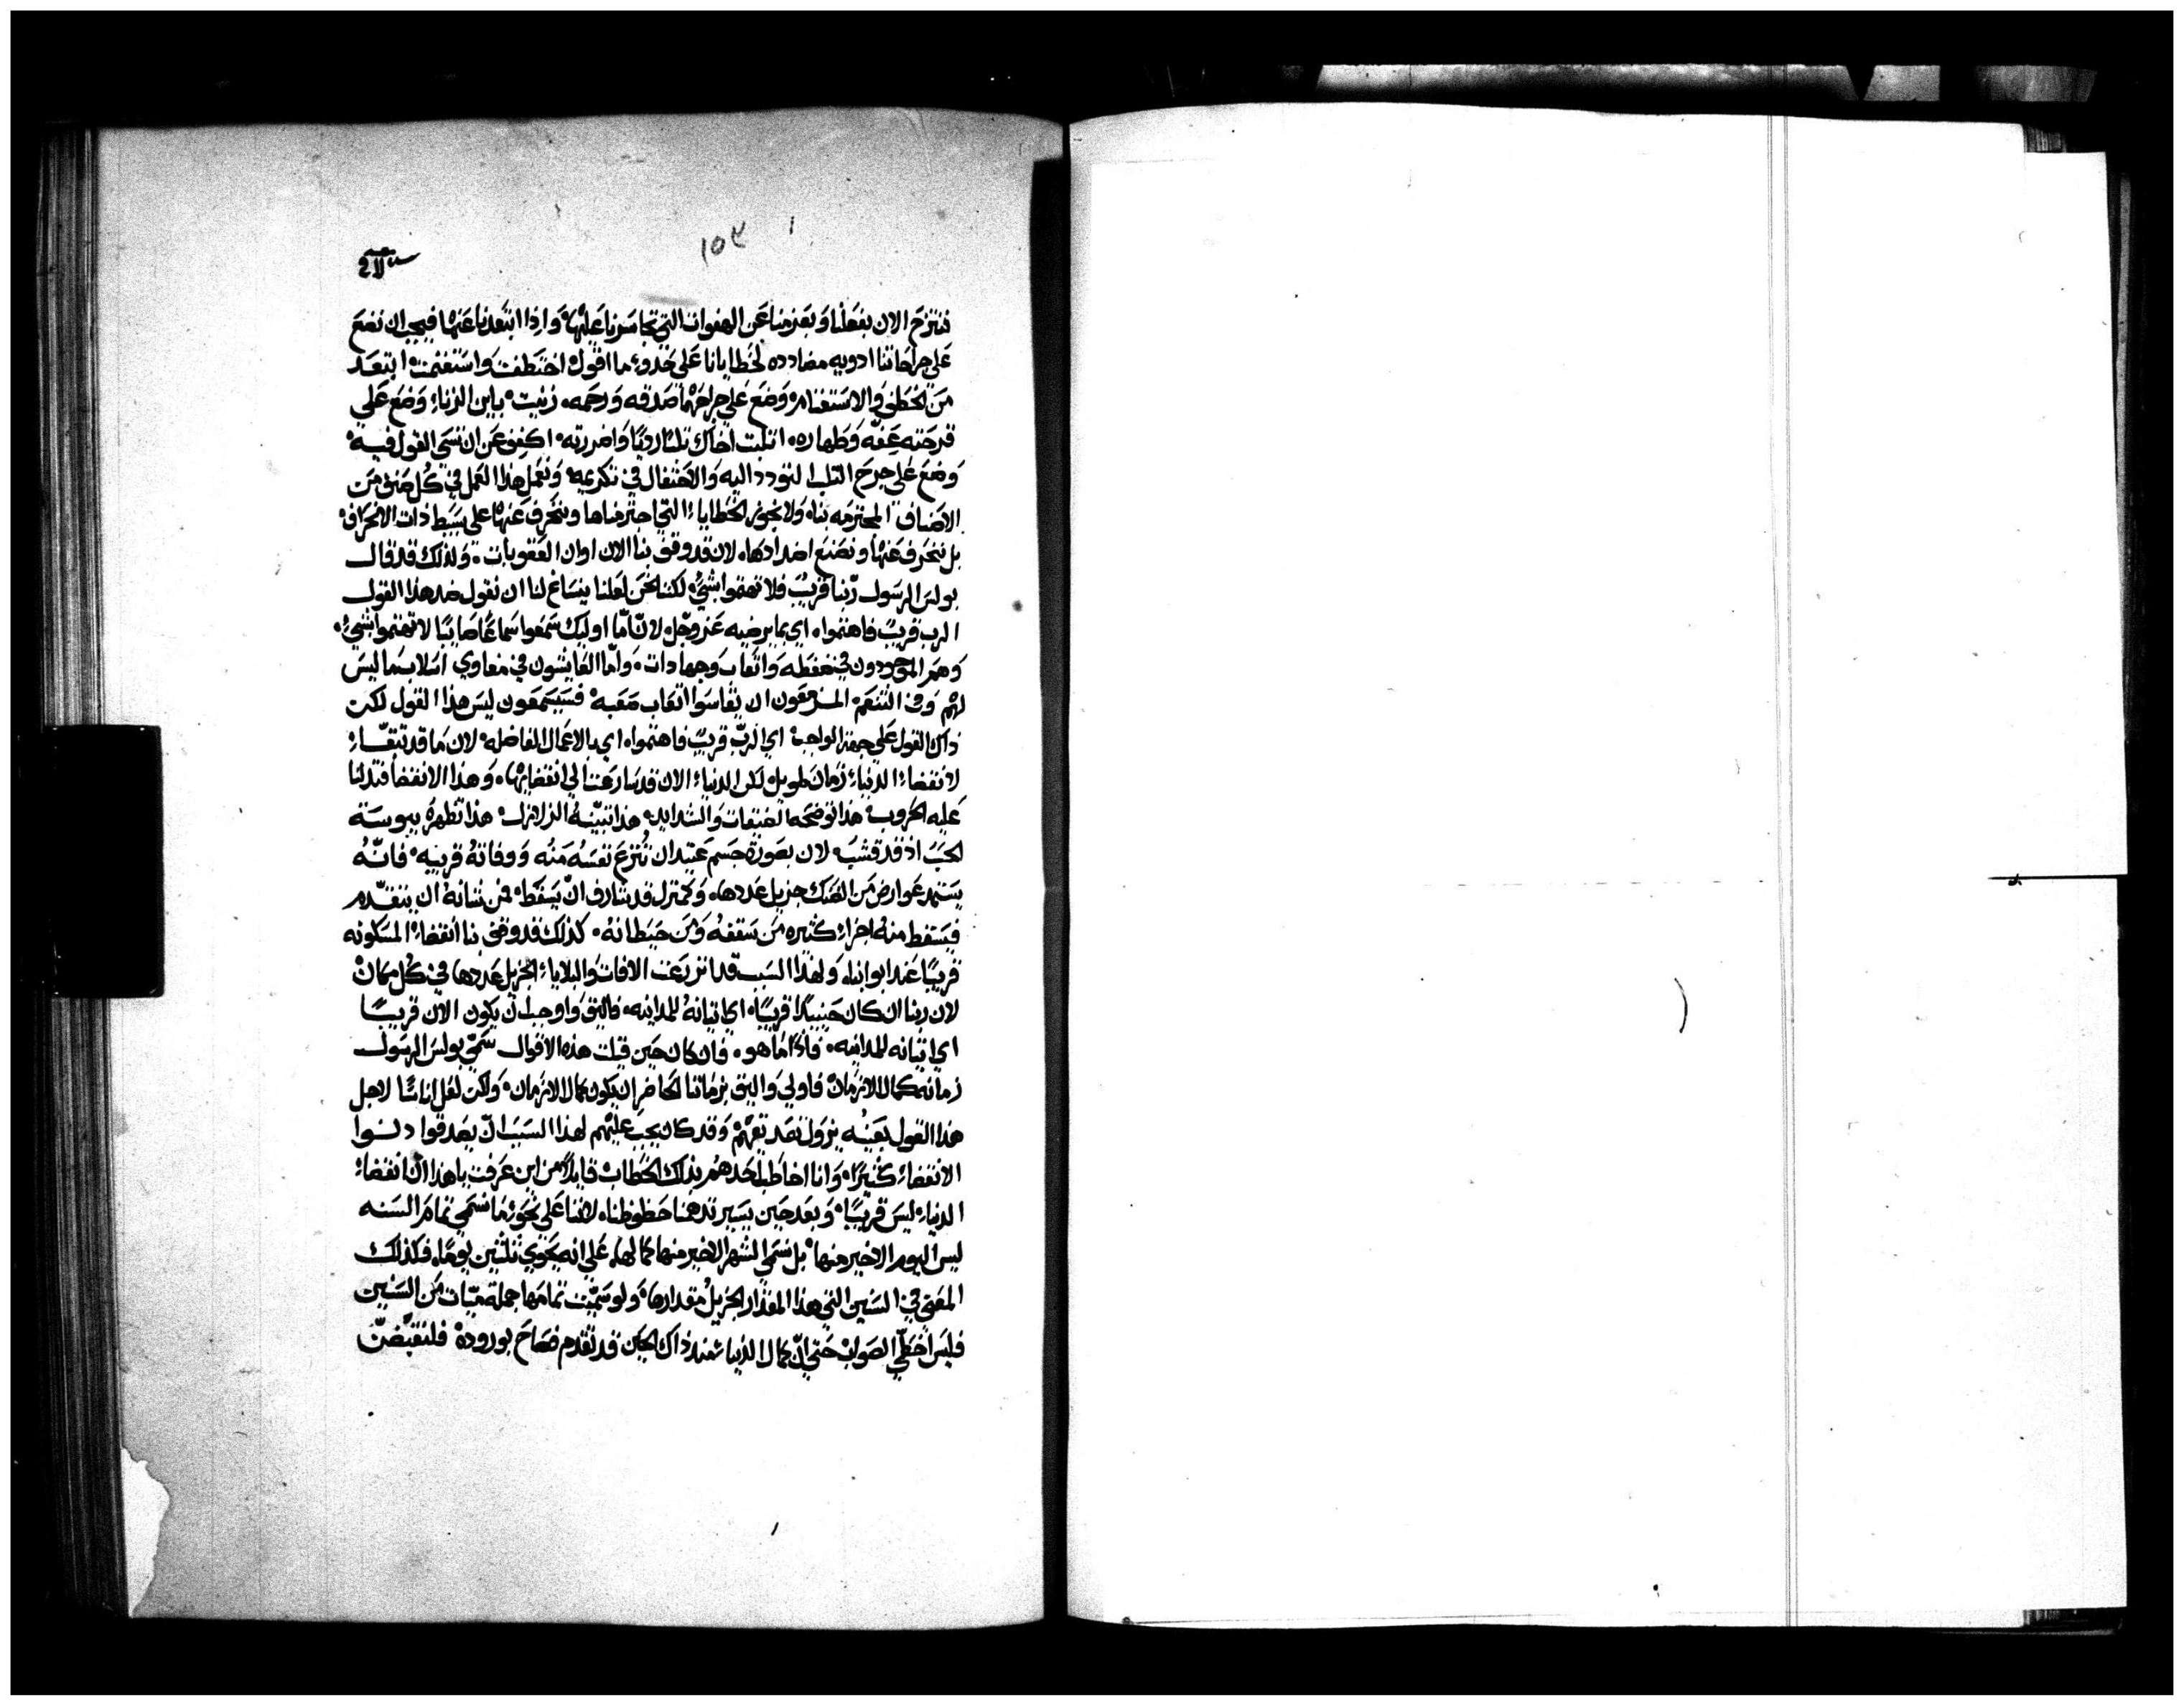 ١٥٣
ننتزح الان بفعلنا وبعزمنا عن الهفوات التي تجاسرنا عليها، واذا ابتعدنا عنها فيجب ان نضع
على جراحاتنا ادويه مضادده لخطايانا على حذو ما اقول اختطفت واستغنمت ابتعد
من الخطف والاستغنام، وضع على جراحهما صدقه ورحمه، زنيت باين الزناء وضع على
قرحته عفه وطهاره، اثلبت اخاك ثلبًا رديًا واضررته، اكفف عن ان تسي القول فيه
وضع على جرح الثلب التودد اليه والاحتفال في تكريمه، ونعمل هذا العمل في كل صنف من
الاصناف المجترمه بنا، ولا نجوز الخطاياء التي اجترمناها وننحرف عنها على بسيط ذات الانحراف
بل ننحرف عنها ونصنع اضدادها، لان قد وقف بنا الان اوان العقوبات، ولذلك قد قال
بولس الرسول ربنا قريب فلا تهتموا بشيء، لكننا نحن لعلنا ينساغ لنا ان نقول ضد هذا القول
الرب قريب فاهتموا، اي بما يرضيه عز وجل، لان اما اوليك سمعوا سماعًا صايبًا لا تهتموا بشيء،
وهم الموجودون في ضغطه واتعاب وجهادات، واما العايشون في مغاوي اسلاب ما ليس
لهم وفي التنعم المزمعون ان يقاسوا اتعاب صعبه فسيسمعون ليس هذا القول لكن
ذاك القول على جهة الواجب اي الرب قريب فاهتموا، اي بالاعمال الفاضله، لان ما قد تبقاء
لانقضاء الدنياء زمان طويل لكن الدنياء الان قد سارعت الى انقضايها، وهذا الانقضا تدلنا
عليه الحروب هذا توضحه الضغطات والشدايد، هذا تبينه الزلازل، هذا تظهره يبوسة
الحب اذ قد قشب، لان بصورة جسم عتيد ان تنزع نفسه منه ووفاته قريبه، فانه
يستمد عوارض من الضنك جزيل عددها، وكمنزل قد شارف ان يسقط، فمن شانه ان يتقدم
فيسقط منه اجزاء كثيره من سقفه ومن حيطانه، كذلك قد وقف بنا انقضاء المسكونه
قريبًا عند ابوابنا، ولهذا السبب قد انزرعت الافات والبلاياء الجزيل عددها في كل مكان
لان ربنا ان كان حينيذ قريبًا، اي اتيانه للمداينه، فاليق واوجب ان يكون الان قريبًا
اي اتيانه للمداينه، فاذا ما هو، فان كان حين قيلت هذه الاقوال سمي بولس الرسول
زمانه كمال الازمان فاولى واليق بزماننا الحاضر ان يكون كمال الازمان، ولكن لعل اناسًا لاجل
هذا القول بعينه يزول تصديقهم وقد كان يجب عليهم لهذا السبب ان يصدقوا دنوا
الانقضاء كثيرًا، وانا اخاطب احدهم بذلك الخطاب قايلًا من اين عرفت يا هذا ان انقضاء
الدنياء ليس قريبًا، وبعد حين يسير تدهنا حظوظنا، لاننا على نحو ما نسمي تمام السنه
ليس اليوم الاخير منها، بل نسمي الشهر الاخير منها كمالها، على انه يحوي ثلثين يومًا، فكذلك
المعنى في السنين التي هذا المقدار الجزيل مقدارها، ولو سميت تمامها جملة ميات من السنين
فليس اخطي الصواب حتى ان كمال الدنياء منذ ذاك الحين قد تقدم فصاح بوروده فلنقبضن